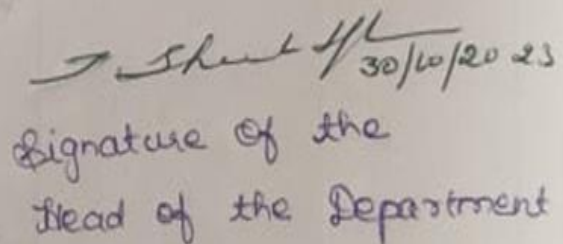 30/10/2023
Signature of the
Head of the Department